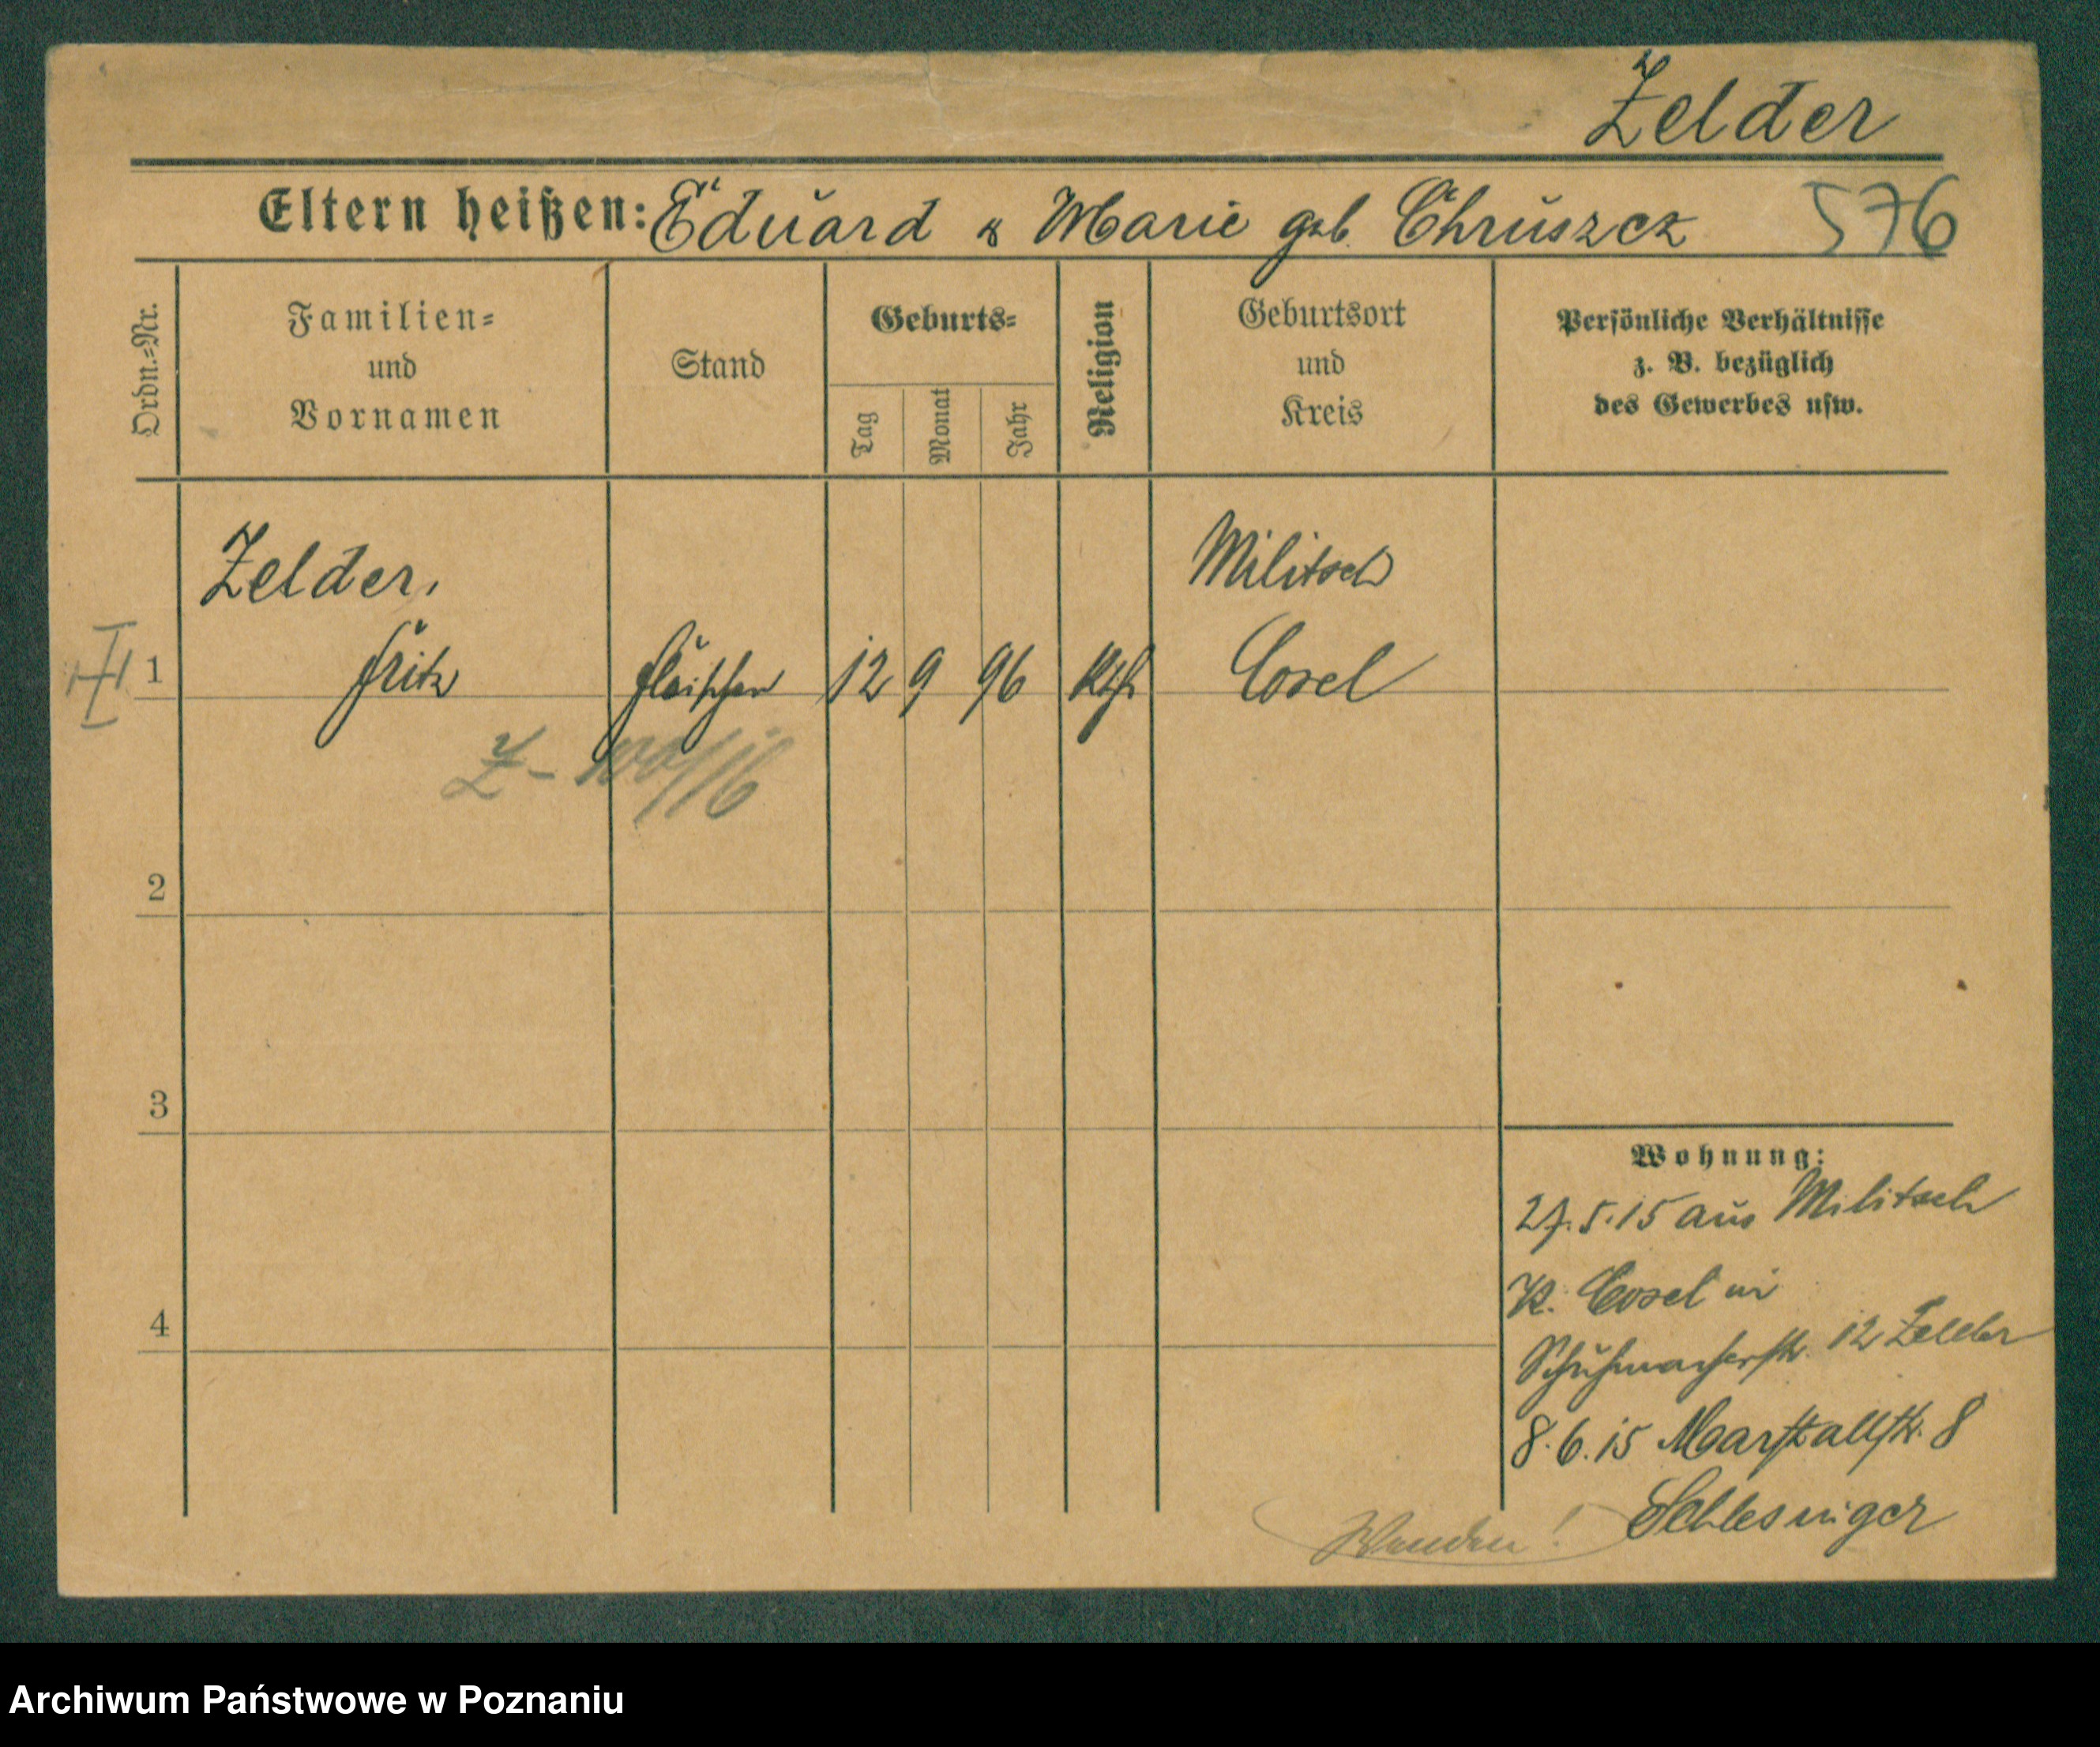 Zelder
Eltern heißen: Eduard & Marie geb. Chruszcz 576
Ordn.-Nr.
Familien-
und
Vornamen
Stand
Geburts-
Tag
Monat
Jahr
Religion
Geburtsort
und
Kreis
Persönliche Verhältnisse
z. B. bezüglich
des Gewerbes usw.
Zelder,
Militsch
1 Fritz Fleischer 12 9 96 Kth Cosel
2
3
4
Wohnung:
27.5.15 aus Militsch
K. Cosel in
Schuhmacherstr. 12 Zelder
8.6.15 Marstallstr. 8
Schlesinger
Wenden!
Archiwum Państwowe w Poznaniu